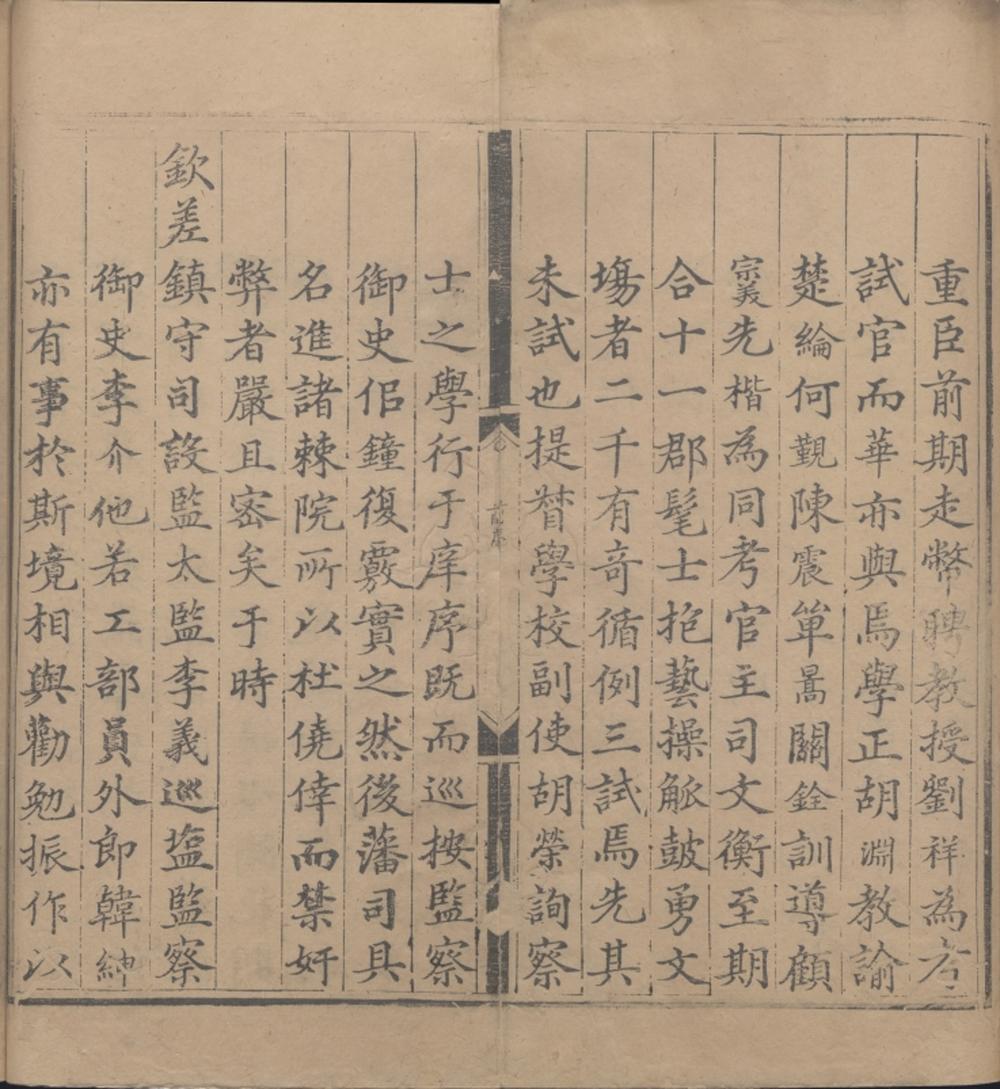 重臣前期走幣聘教授劉祥為考
試官而華亦與焉學正胡淵教諭
楚綸何觀陳震單暠關銓訓導顧
宗義先楷為同考官主司文衡至期
合十一郡髦士抱藝操觚鼓勇文
塲者二千有奇循例三試焉先其
未試也提督學校副使胡榮詢察
前序
士之學行于庠序既而巡按監察
御史佀鐘復覈實之然後藩司具
名進諸棘院所以杜僥倖而禁奸
弊者嚴且宻矣于時
欽差鎮守司設監太監李義巡塩監察
御史李介他若工部員外郎韓紳
亦有事於斯境相與勸勉振作以